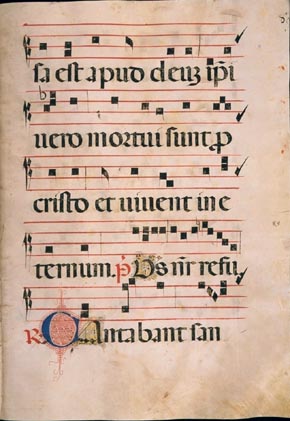 sa est apud deuz ip̄i
uero mortui sunt p̱
cristo et uiuent in e
ternum. p̄s Ds nr̄ refu
R Cantabant san